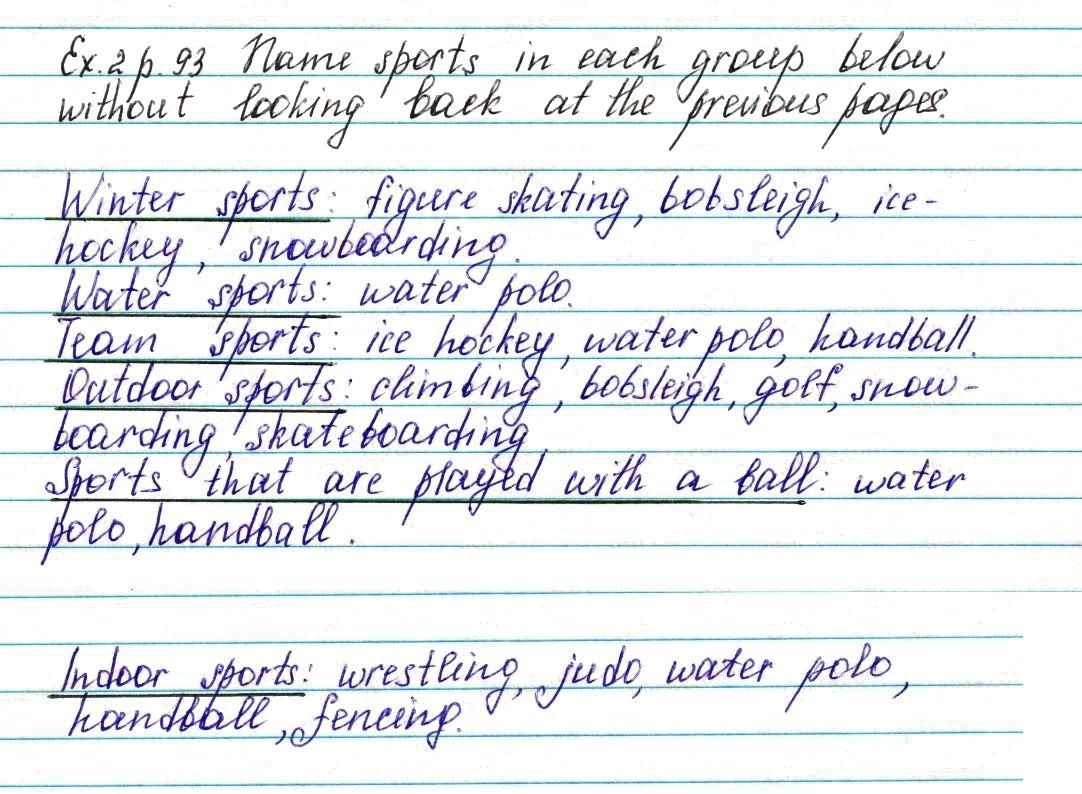 Ex. 2 p. 93 Name sports in each group below
without looking back at the previous pages.
Winter sports: figure skating, bobsleigh, ice-
hockey, snowboarding.
Water sports: water polo.
Team sports: ice hockey, water polo, handball.
Outdoor sports: climbing, bobsleigh, golf, snow-
boarding, skateboarding
Sports that are played with a ball: water
polo, handball.
Indoor sports: wrestling, judo, water polo,
handball, fencing.